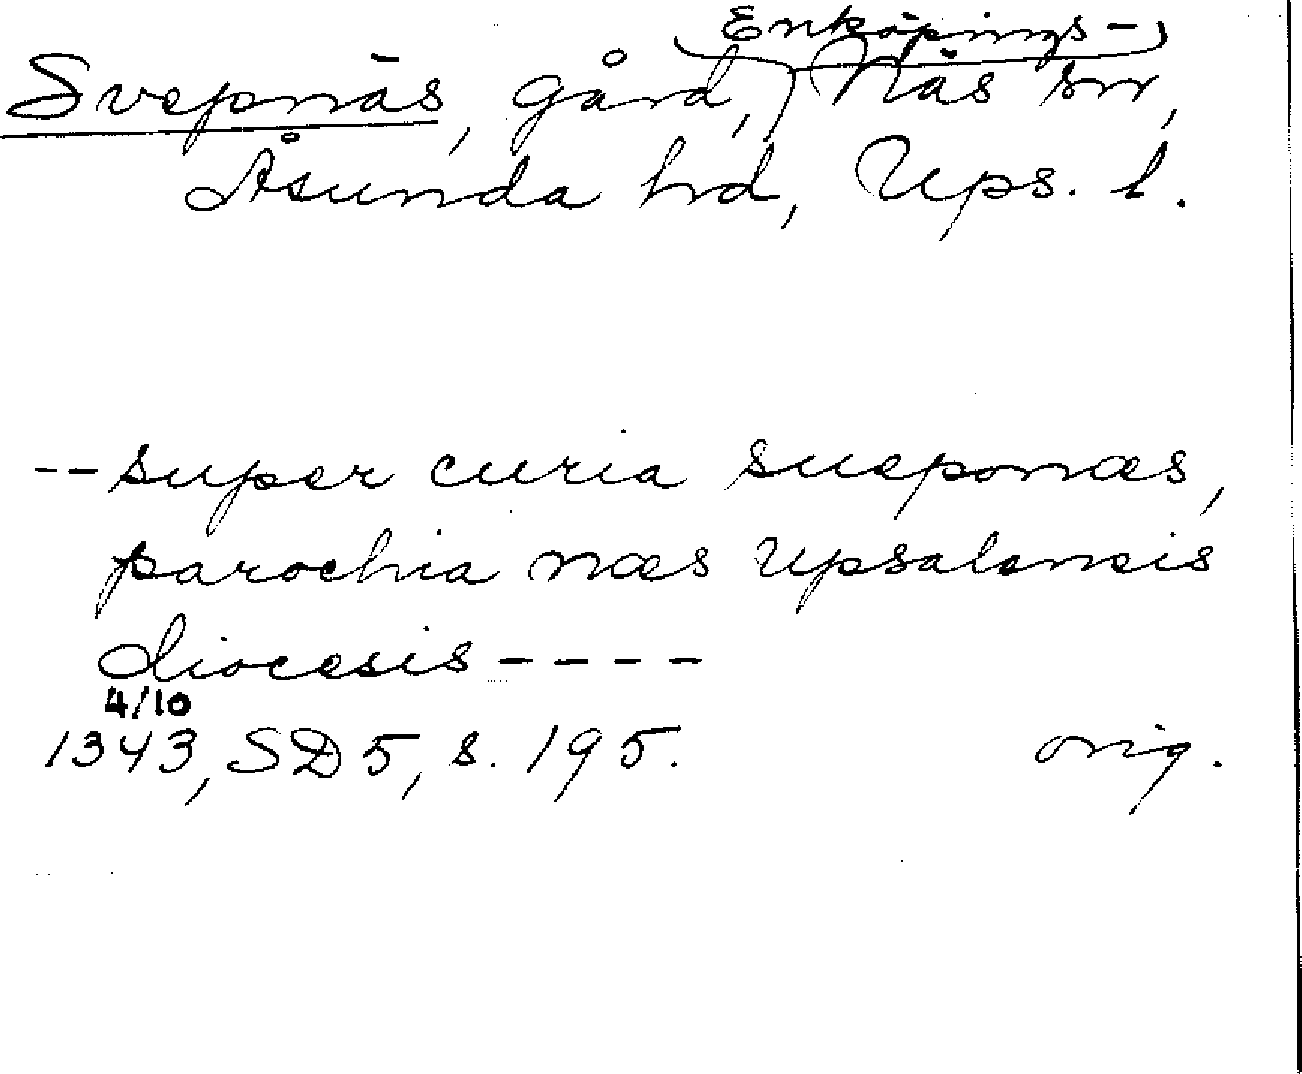 Enköpings-
Svepnäs, gård, Näs sn,
Åsunda hd, Ups. l.
-- super curia sueponæs,
parochia næs Upsalensis
diocesis ----
4/10
1343, SD 5, s. 195. orig.